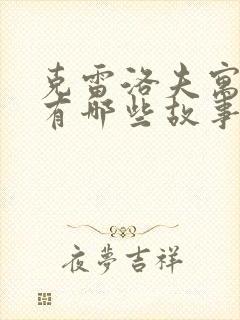 克雷洛夫寓
有哪些故事
夜夢吉祥